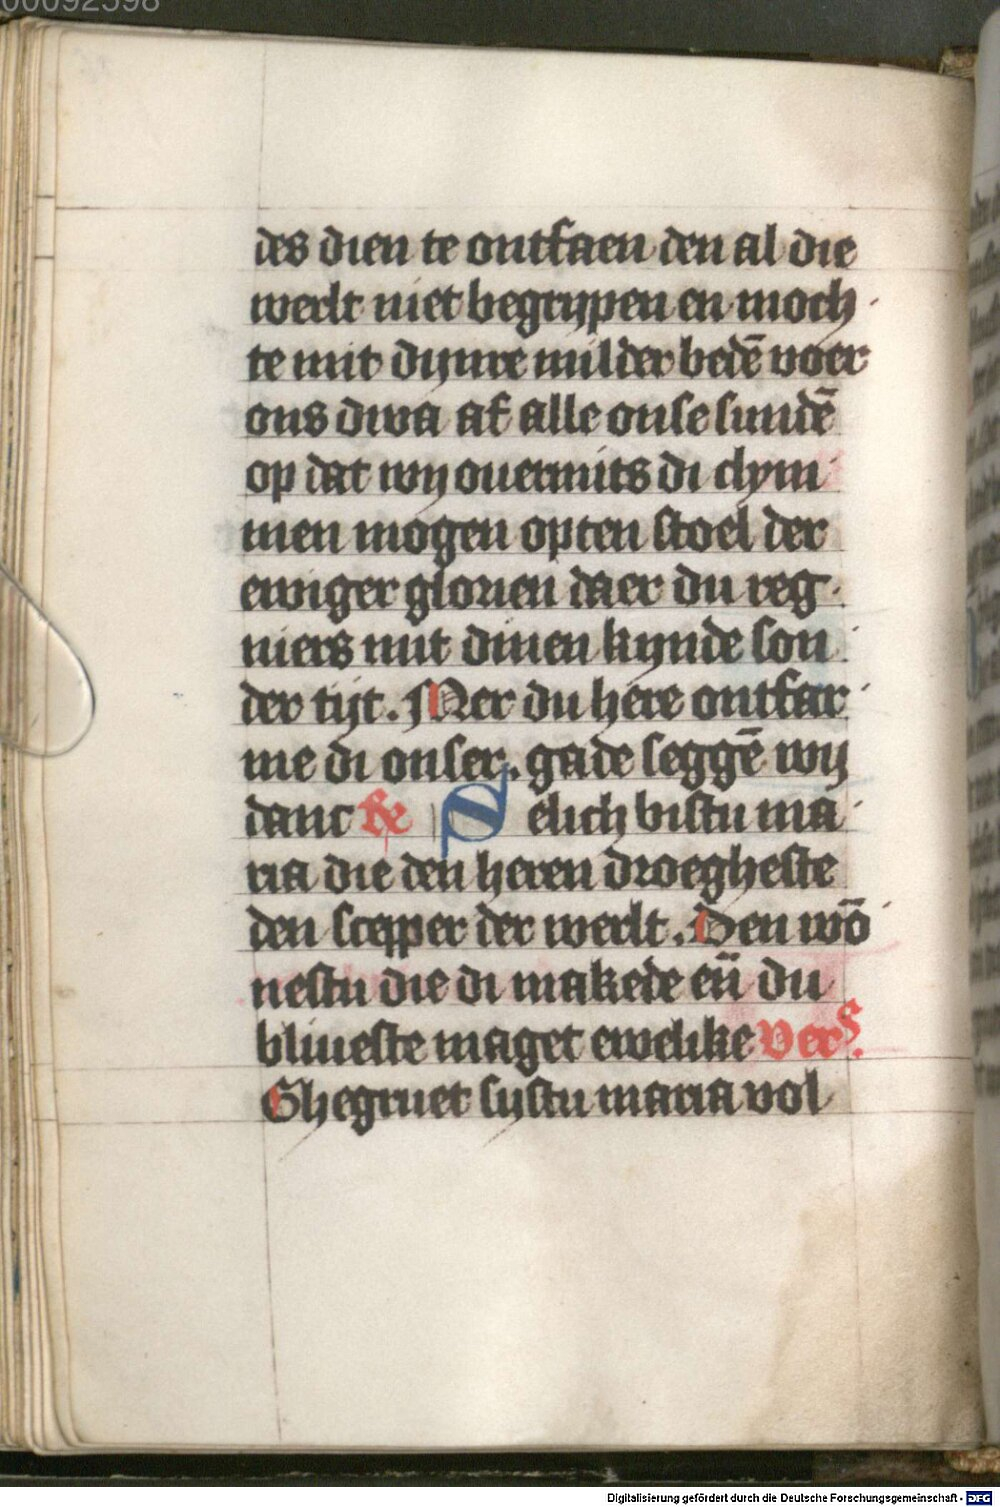 00092598
des dien te ontfaen den al die
werlt niet begrypen en moch
te mit dynre milder bedē voer
ons dwa af alle onse sundē
op dat wy ouermits di clym
men mogen opten stoel der
ewiger glorien daer du reg
niers mit dinen kynde son
der tijt. Mer du here ontfar
me di onser. gade seggē wy
danc R Selich bistu ma
ria die den heren droegheste
den scepper der werlt. Den wō
nestu die di makede eñ du
bliueste maget ewelike Vers.
Ghegruet systu maria vol
Digitalisierung gefördert durch die Deutsche Forschungsgemeinschaft - DFG